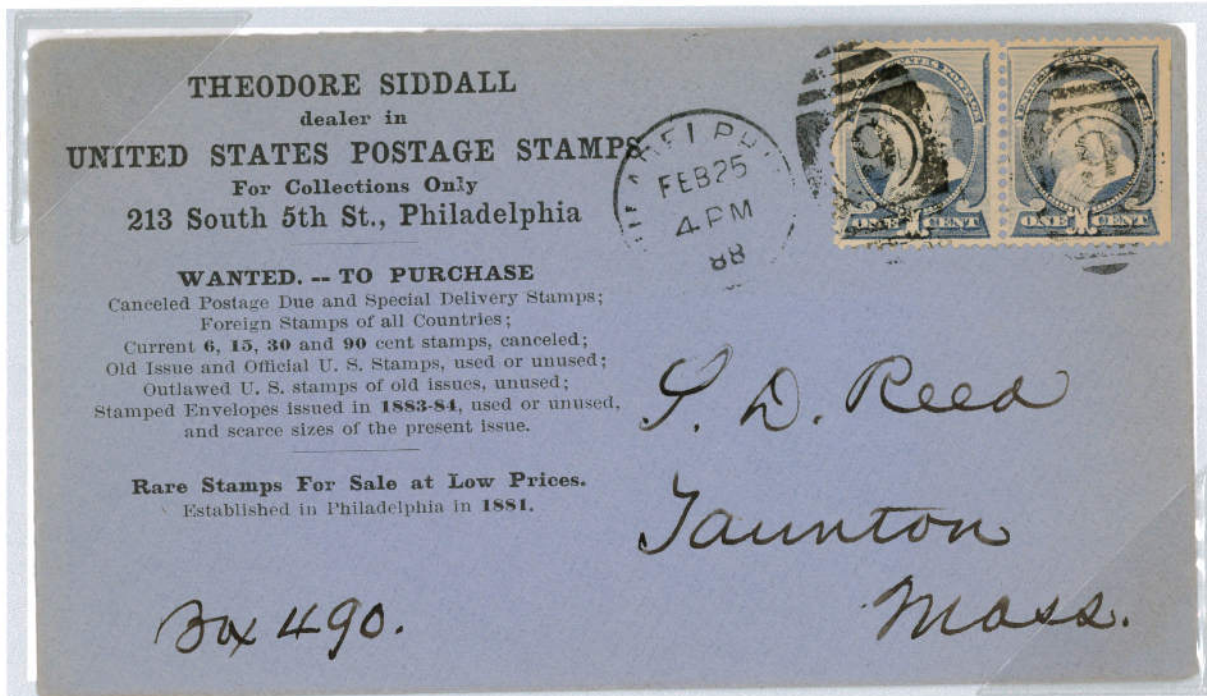 THEODORE SIDDALL
dealer in
UNITED STATES POSTAGE STAMPS
For Collections Only
213 South 5th St., Philadelphia
WANTED. -- TO PURCHASE
Canceled Postage Due and Special Delivery Stamps;
Foreign Stamps of all Countries;
Current 6, 15, 30 and 90 cent stamps, canceled;
Old Issue and Official U. S. Stamps, used or unused;
Outlawed U. S. stamps of old issues, unused;
Stamped Envelopes issued in 1883-84, used or unused,
and scarce sizes of the present issue.
Rare Stamps For Sale at Low Prices.
Established in Philadelphia in 1881.
FEB 25
4 PM
88
ONE 1 CENT
ONE 1 CENT
S. D. Reed
Taunton
Mass.
Box 490.